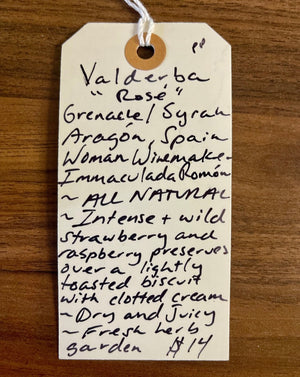 Valderba
"Rosé"
Grenache/Syrah
Aragón, Spain
Woman Winemaker
Immaculada Romón
~ ALL NATURAL
~ Intense + wild
strawberry and
raspberry preserves
over a lightly
toasted biscuit
with clotted cream
~ Dry and Juicy
~ Fresh herb
garden $14